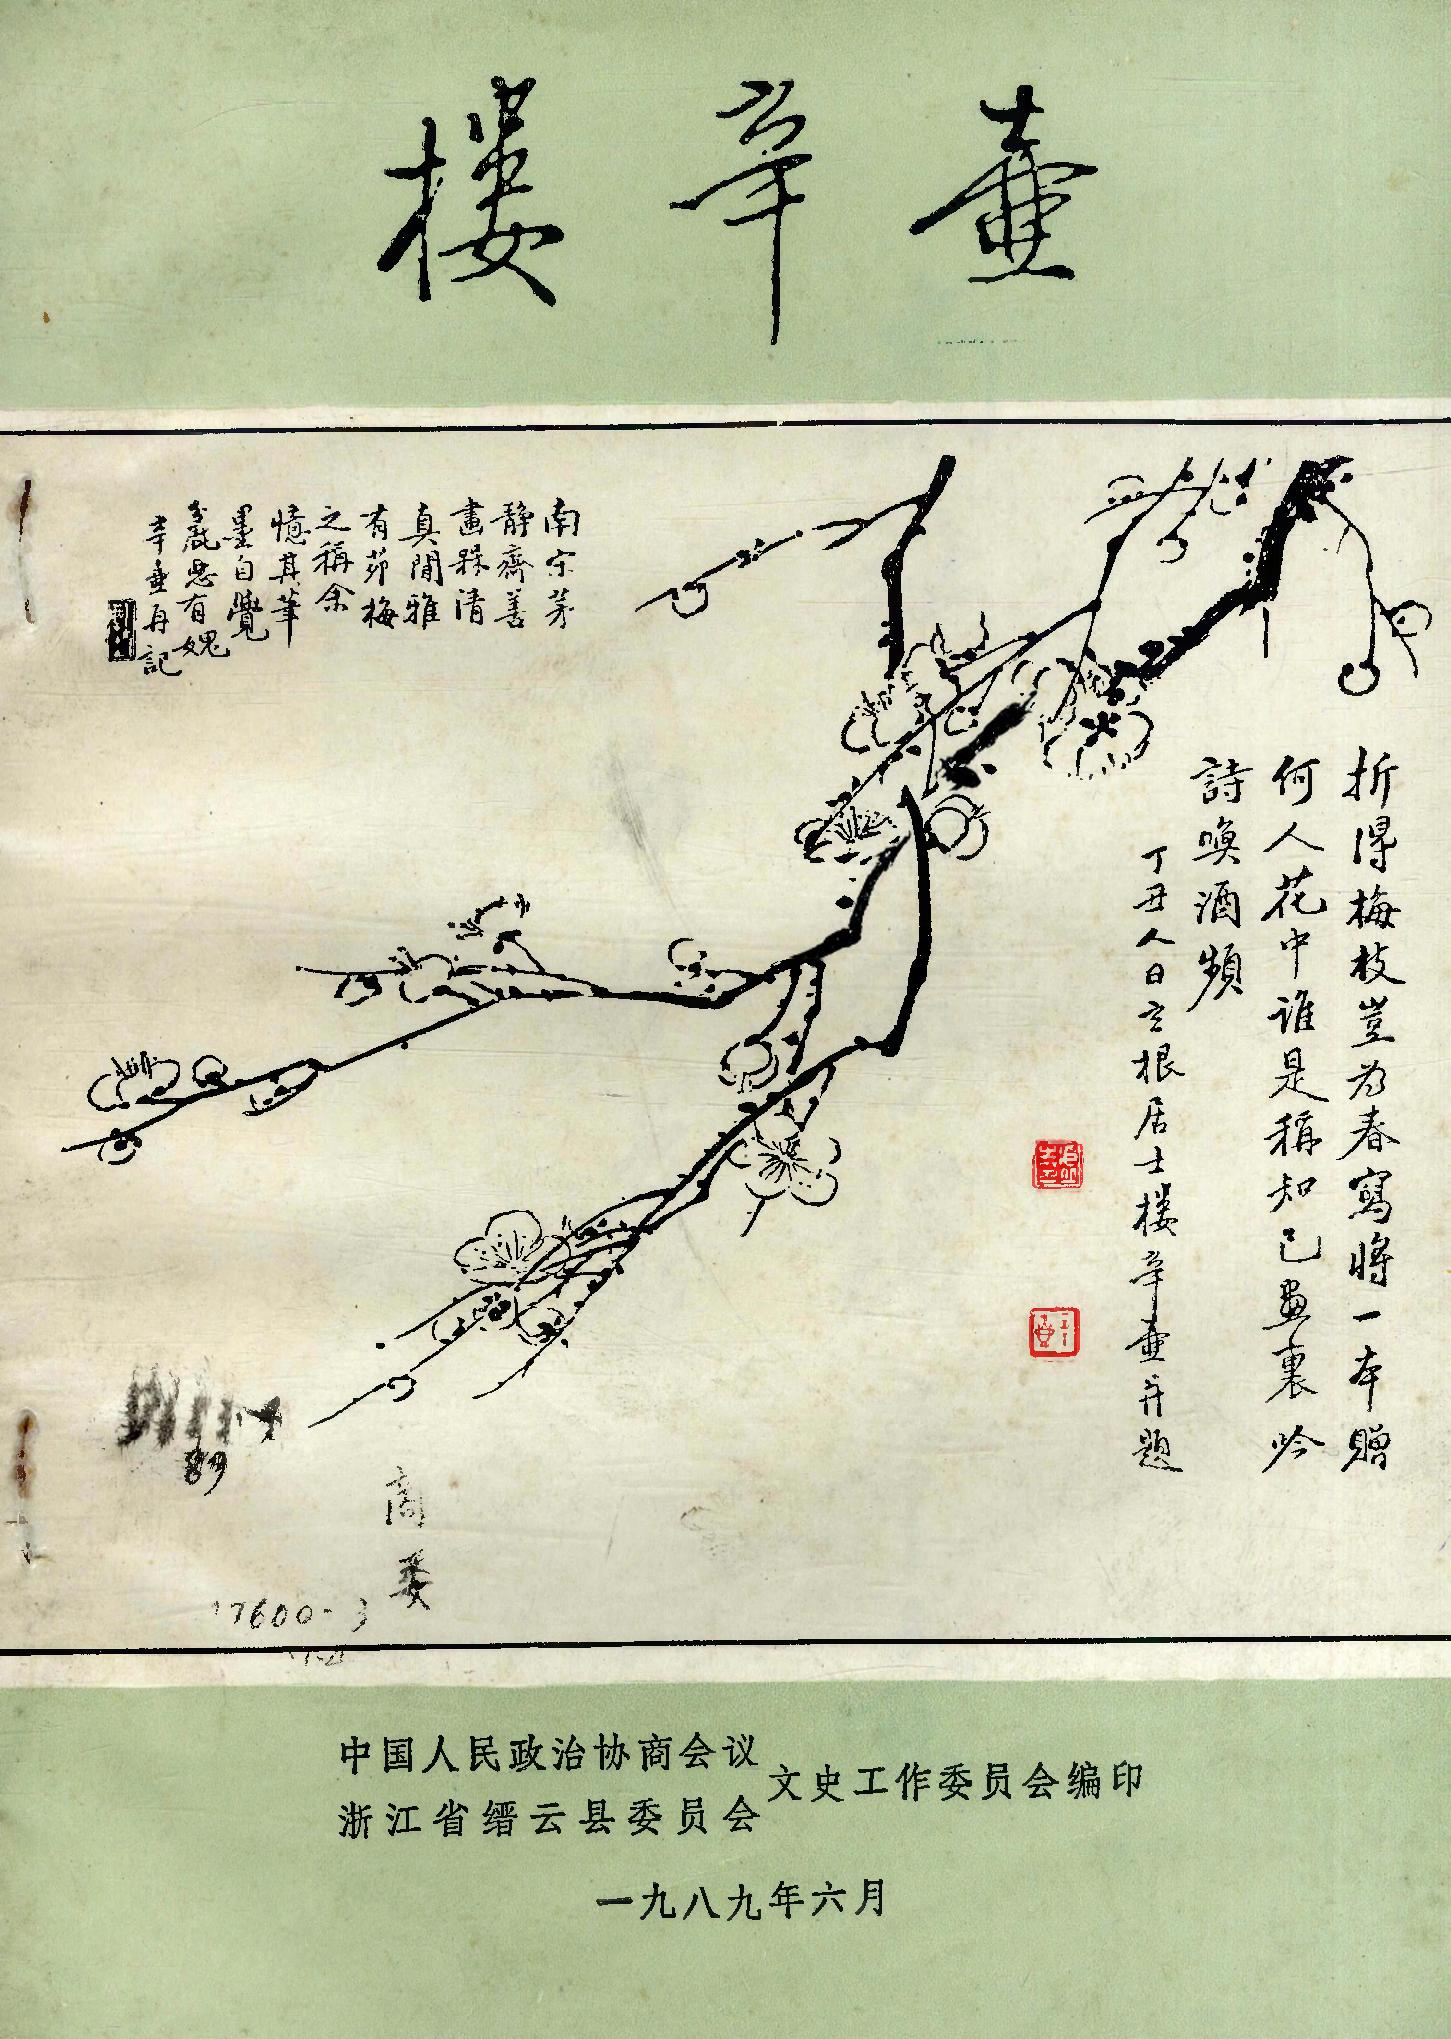 樓辛壺
折得梅枝豈为春寫將一本贈
何人花中誰是稱知己畫裏吟
詩喚酒頻
丁丑人日玄根居士樓辛壺并題
南宋茅
静齋善
畫槑清
真閒雅
有茆梅
之稱余
憶其筆
墨自覺
麤惡有媿
辛壺再記
89
17600-3
中国人民政治协商会议
浙江省缙云县委员会
文史工作委员会编印
一九八九年六月